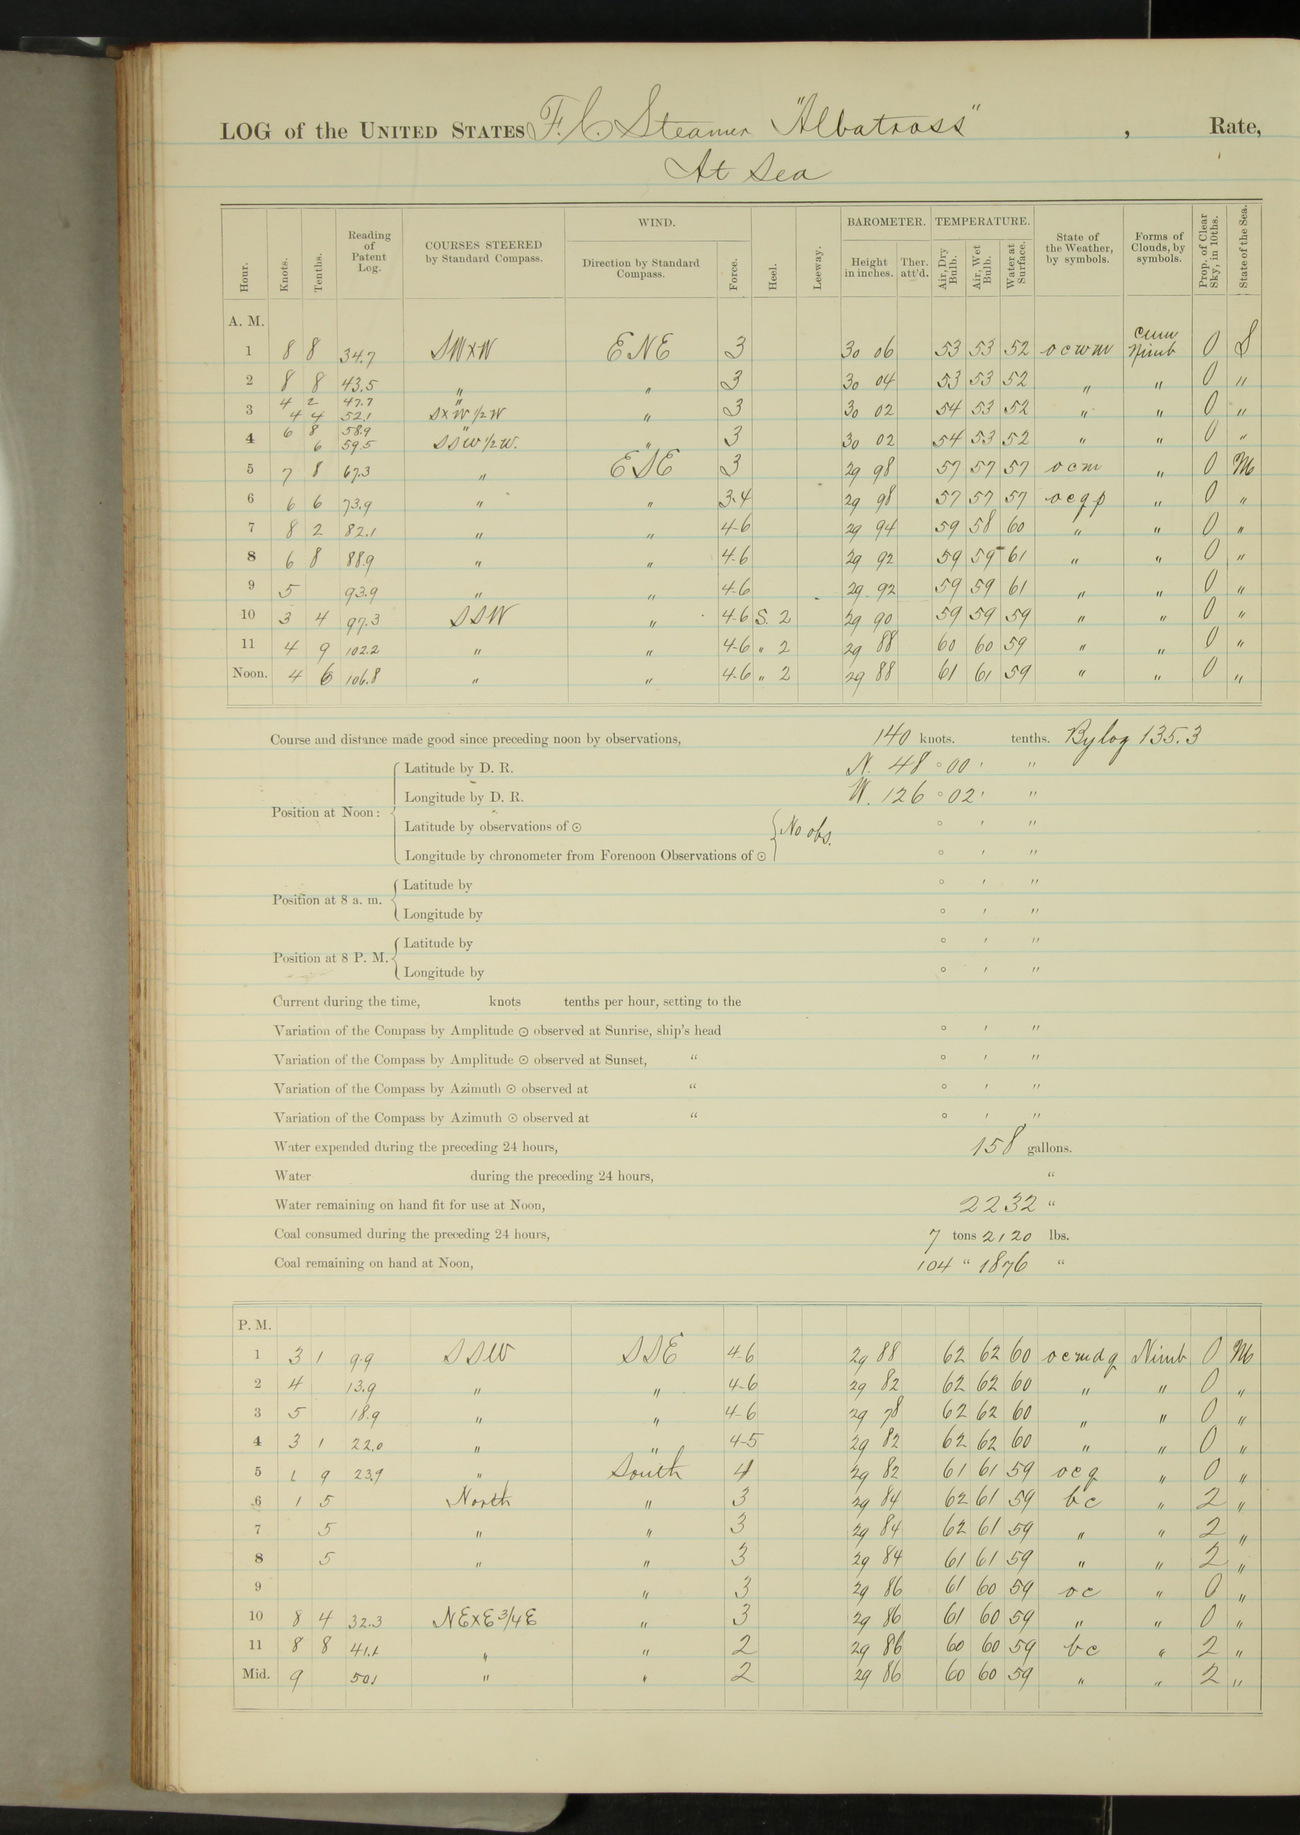 LOG of the UNITED STATES F.C. Steamer "Albatross" , Rate,
At Sea
Hour. Knots. Tenths. Reading of Patent Log. COURSES STEERED by Standard Compass. WIND. Direction by Standard Compass. Force. Heel. Leeway. BAROMETER. Height in inches. Ther. att'd. TEMPERATURE. Air, Dry Bulb. Air, Wet Bulb. Water at Surface. State of the Weather, by symbols. Forms of Clouds, by symbols. Prop. of Clear Sky, in 10ths. State of the Sea.
A. M.
1 8 8 34.7 SWxW ENE 3 30 06 53 53 52 ocwm Cum Nimb 0 S
2 8 8 43.5 " " 3 30 04 53 53 52 " " 0 "
4 2 47.7 "
3 4 4 52.1 SxW 1/2 W " 3 30 02 54 53 52 " " 0 "
6 8 58.9 "
4 6 59.5 SSW 1/2 W. " 3 30 02 54 53 52 " " 0 "
5 7 8 67.3 " ESE 3 29 98 57 57 57 ocm " 0 M
6 6 6 73.9 " " 3.4 29 98 57 57 57 ocqp " 0 "
7 8 2 82.1 " " 4-6 29 94 59 58 60 " " 0 "
8 6 8 88.9 " " 4-6 29 92 59 59 61 " " 0 "
9 5 93.9 " " 4-6 29 92 59 59 61 " " 0 "
10 3 4 97.3 SSW " 4-6 S. 2 29 90 59 59 59 " " 0 "
11 4 9 102.2 " " 4-6 " 2 29 88 60 60 59 " " 0 "
Noon. 4 6 106.8 " " 4-6 " 2 29 88 61 61 59 " " 0 "
Course and distance made good since preceding noon by observations, 140 knots. tenths. By log 135.3
Position at Noon: Latitude by D. R. N. 48 ° 00 ' "
Longitude by D. R. W. 126 ° 02 ' "
Latitude by observations of ⊙ No obs. ° ' "
Longitude by chronometer from Forenoon Observations of ⊙ ° ' "
Position at 8 a. m. Latitude by ° ' "
Longitude by ° ' "
Position at 8 P. M. Latitude by ° ' "
Longitude by ° ' "
Current during the time, knots tenths per hour, setting to the
Variation of the Compass by Amplitude ⊙ observed at Sunrise, ship's head ° ' "
Variation of the Compass by Amplitude ⊙ observed at Sunset, " ° ' "
Variation of the Compass by Azimuth ⊙ observed at " ° ' "
Variation of the Compass by Azimuth ⊙ observed at " ° ' "
Water expended during the preceding 24 hours, 158 gallons.
Water during the preceding 24 hours, "
Water remaining on hand fit for use at Noon, 2232 "
Coal consumed during the preceding 24 hours, 7 tons 2120 lbs.
Coal remaining on hand at Noon, 104 " 1876 "
P. M.
1 3 1 9.9 SSW SSE 4-6 29 88 62 62 60 ocmdq Nimb 0 M
2 4 13.9 " " 4-6 29 82 62 62 60 " " 0 "
3 5 18.9 " " 4-6 29 78 62 62 60 " " 0 "
4 3 1 22.0 " " 4-5 29 82 62 62 60 " " 0 "
5 1 9 23.9 " South 4 29 82 61 61 59 ocq " 0 "
6 1 5 North " 3 29 84 62 61 59 bc " 2 "
7 5 " " 3 29 84 62 61 59 " " 2 "
8 5 " " 3 29 84 61 61 59 " " 2 "
9 " 3 29 86 61 60 59 oc " 0 "
10 8 4 32.3 NExE 3/4 E " 3 29 86 61 60 59 " " 0 "
11 8 8 41.1 " " 2 29 86 60 60 59 bc " 2 "
Mid. 9 50.1 " " 2 29 86 60 60 59 " " 2 "